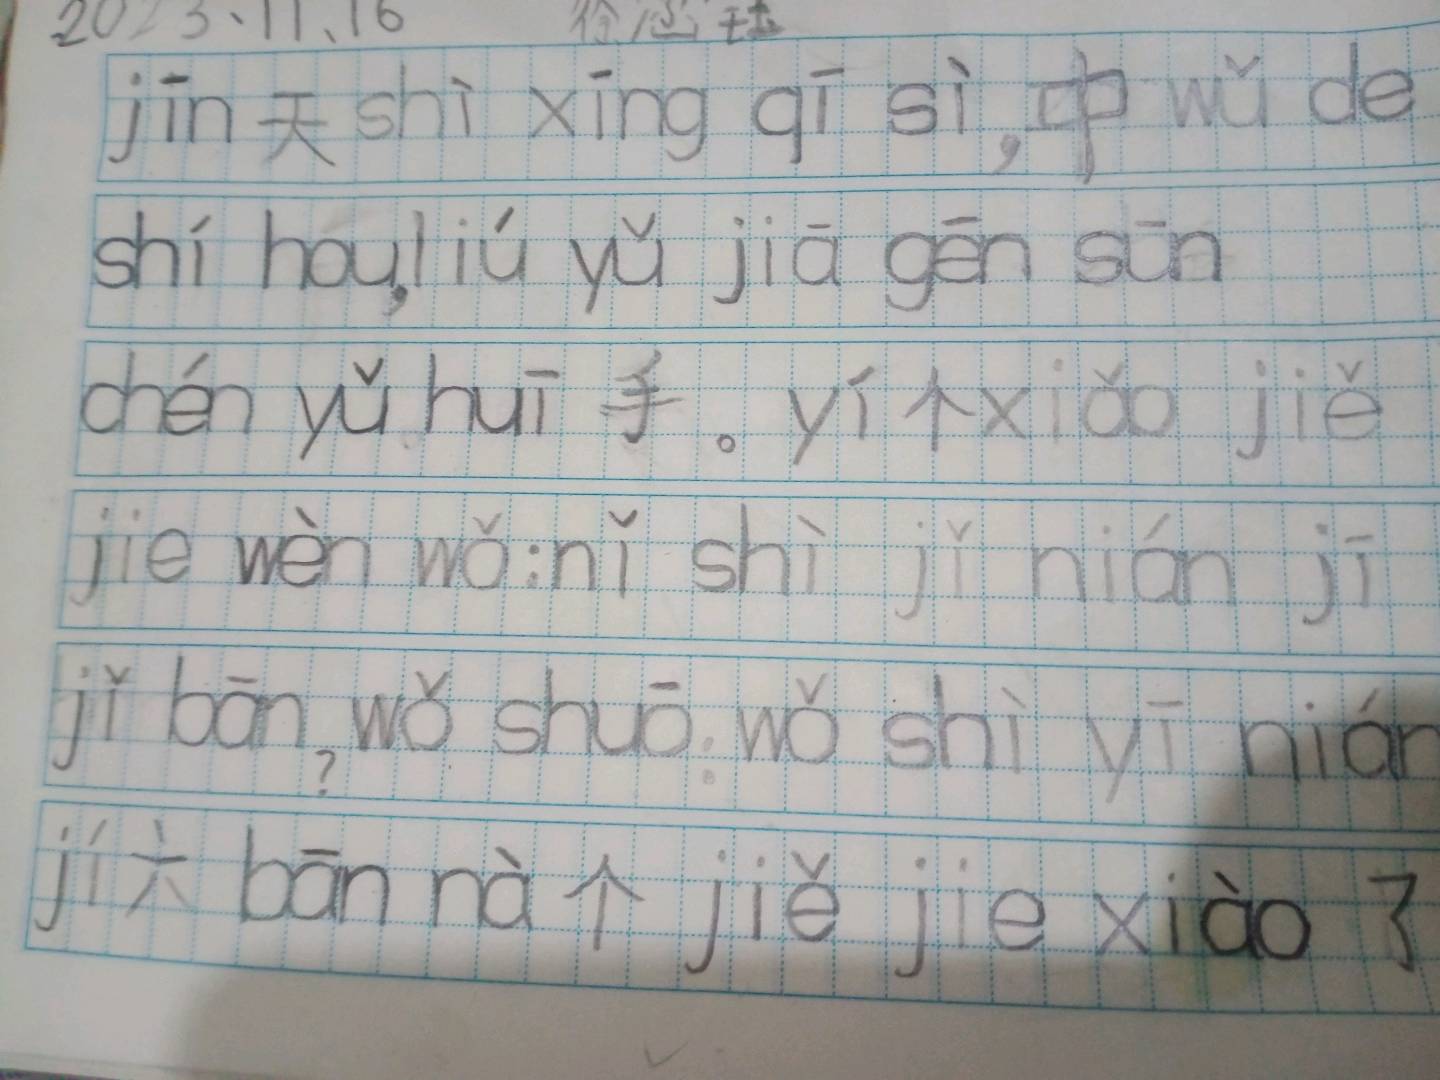 2023、11、16
jīn 天 shì xīng qī sì,中 wǔ de
shí hóu,liú yǔ jiā gēn sūn
chén yǔ huī 子。yí 个 xiǎo jiě
jie wèn wǒ:nǐ shì jǐ nián jī
jǐ bān?wǒ shuō:wǒ shì yī nián
jí 六 bān nà 个 jiě jie xiào 了